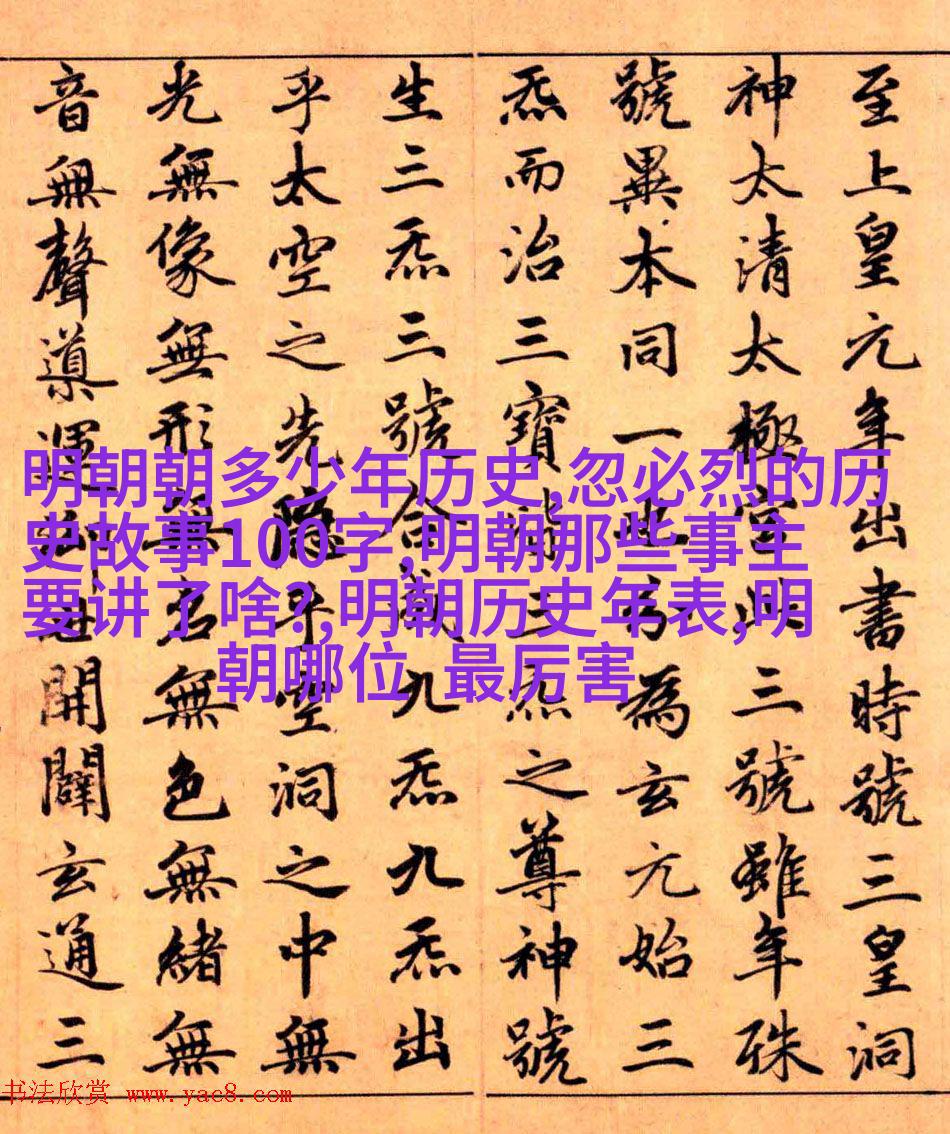 至上皇元年出書時號三皇洞
神太清太極宮此三號雖年殊
號異本同一此為玄元始三
炁而治三寶三炁之尊神號
生三炁三號合九炁九炁出
乎太空之先空洞之中無
光無像無形無名無色無緒無
音無聲導運開闢玄通三
明朝朝多少年历史,忽必烈的历
史故事100字,明朝那些事主
要讲了啥?,明朝历史年表,明
朝哪位 最厉害
书法欣赏 www.yac8.com